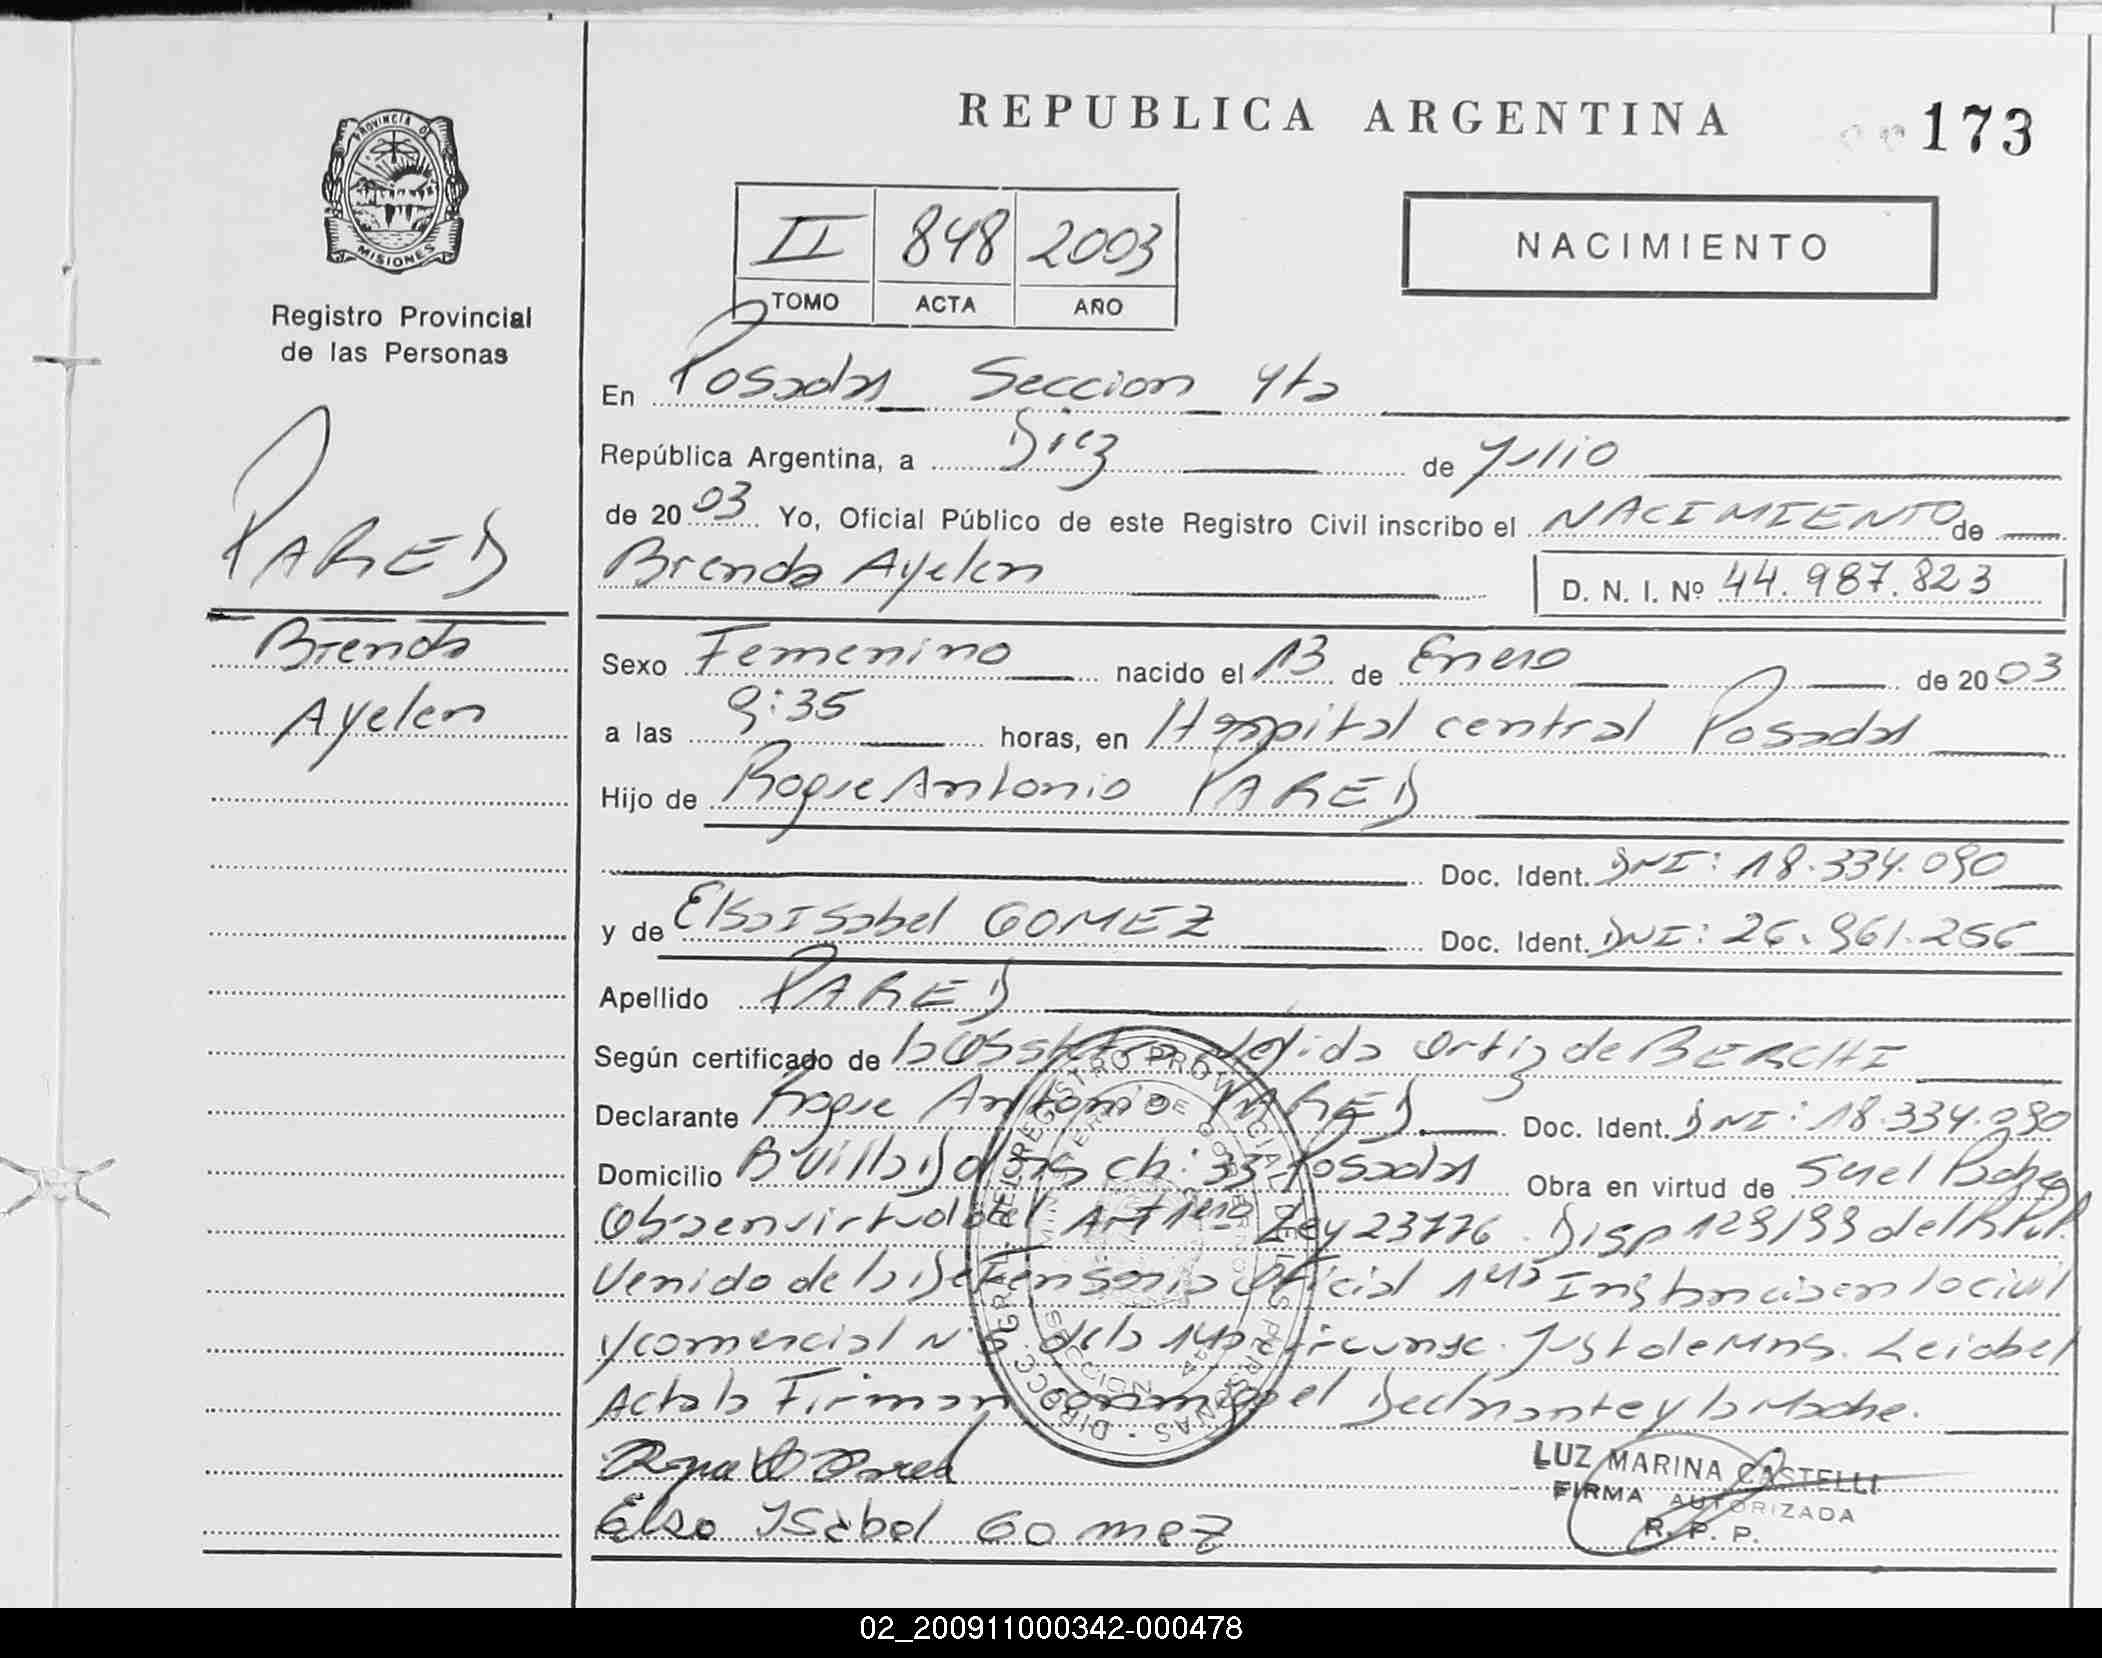 REPUBLICA ARGENTINA
173
PROVINCIA DE MISIONES
Registro Provincial
de las Personas
II 848 2003
TOMO ACTA AÑO
NACIMIENTO
PARED
Brenda
Ayelen
En Posadas Seccion 4ta
República Argentina, a Diez de Julio
de 2003 Yo, Oficial Público de este Registro Civil inscribo el NACIMIENTO de
Brenda Ayelen D. N. I. Nº 44.987.823
Sexo Femenino nacido el 13 de Enero de 2003
a las 9:35 horas, en Hospital central Posadas
Hijo de Roque Antonio PARED
Doc. Ident. DNI: 18.334.090
y de Elsa Isabel GOMEZ Doc. Ident. DNI: 26.961.256
Apellido PARED
Según certificado de la Obstetra Ortiz de BERCHI
Declarante Roque Antonio PARED Doc. Ident. DNI: 18.334.090
Domicilio Bº Villa Ch: 33 Posadas Obra en virtud de
Obra en virtud del Art 1ero Ley 23776. Disp 129/99 del
Venido de la Defensoria Oficial 1era Instancia en lo civil
y comercial Nº de la 1era circunsc. Just de Mns. Leida el
Acta la Firman conmigo el Declarante y la Madre.
Elsa Isabel Gomez
LUZ MARINA CASTELLI
FIRMA AUTORIZADA
R. P. P.
DIRECC. GRAL. DEL REGISTRO PROVINCIAL DE LAS PERSONAS
MINISTERIO DE GOBIERNO
SECCION 4a
02_200911000342-000478